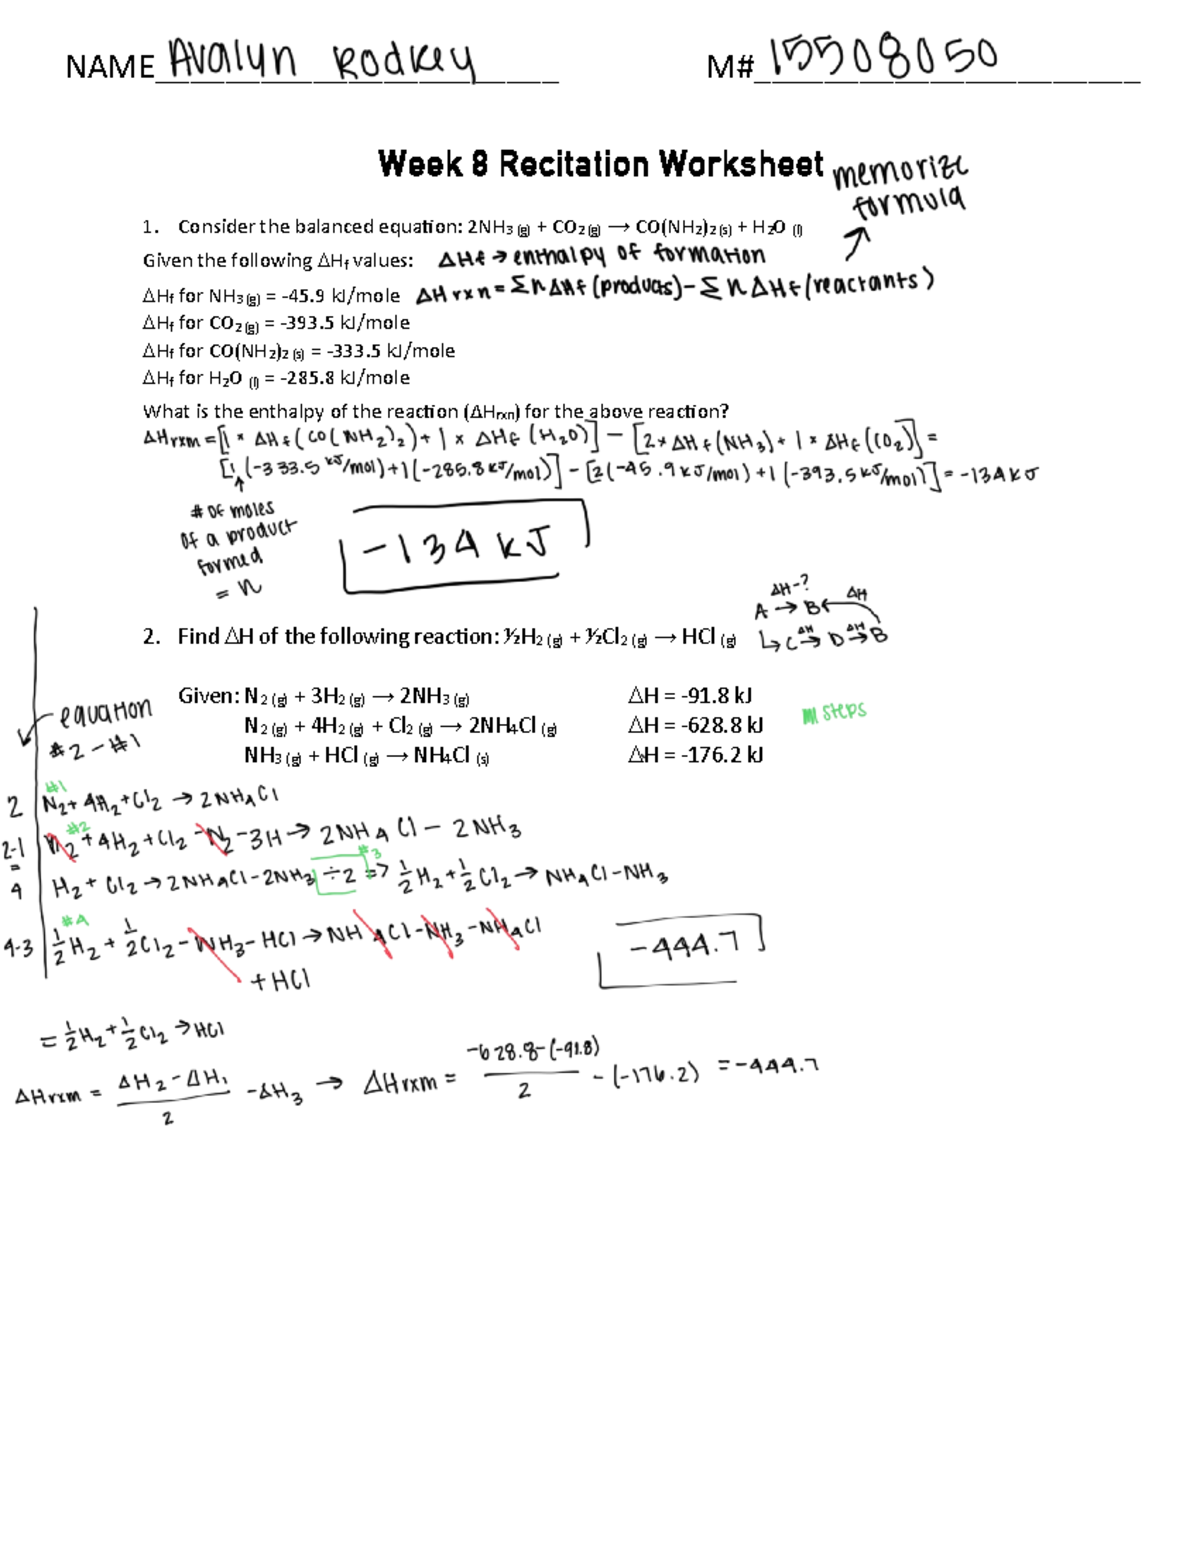 NAME Avalyn Rodkey M# 15508050
Week 8 Recitation Worksheet
memorize
formula
1. Consider the balanced equation: 2NH3 (g) + CO2 (g) → CO(NH2)2 (s) + H2O (l)
Given the following ΔHf values: ΔHf → enthalpy of formation
ΔHf for NH3 (g) = -45.9 kJ/mole ΔHrxn = Σn ΔHf (products) - Σn ΔHf (reactants)
ΔHf for CO2 (g) = -393.5 kJ/mole
ΔHf for CO(NH2)2 (s) = -333.5 kJ/mole
ΔHf for H2O (l) = -285.8 kJ/mole
What is the enthalpy of the reaction (ΔHrxn) for the above reaction?
ΔHrxm = [1 × ΔHf (CO(NH2)2) + 1 × ΔHf (H2O)] - [2 × ΔHf (NH3) + 1 × ΔHf (CO2)] =
[1 (-333.5 kJ/mol) + 1 (-285.8 kJ/mol)] - [2 (-45.9 kJ/mol) + 1 (-393.5 kJ/mol)] = -134 kJ
# of moles
of a product
formed
= n
-134 kJ
ΔH-?
A → B ← ΔH
2. Find ΔH of the following reaction: ½H2 (g) + ½Cl2 (g) → HCl (g)
↳ C ΔH→ D ΔH→ B
Given: N2 (g) + 3H2 (g) → 2NH3 (g) ΔH = -91.8 kJ
N2 (g) + 4H2 (g) + Cl2 (g) → 2NH4Cl (g) ΔH = -628.8 kJ
NH3 (g) + HCl (g) → NH4Cl (s) ΔH = -176.2 kJ
steps
equation
#2 - #1
#1
2 N2 + 4H2 + Cl2 → 2NH4Cl
#2
2-1 N2 + 4H2 + Cl2 - N2 - 3H → 2NH4Cl - 2NH3
=
#3
4 H2 + Cl2 → 2NH4Cl - 2NH3 ÷2 => ½H2 + ½Cl2 → NH4Cl - NH3
#4
4-3 ½H2 + ½Cl2 - NH3 - HCl → NH4Cl - NH3 - NH4Cl
+ HCl
-444.7
= ½H2 + ½Cl2 → HCl
ΔHrxm = ΔH2 - ΔH1 / 2 - ΔH3 → ΔHrxm = -628.8 - (-91.8) / 2 - (-176.2) = -444.7